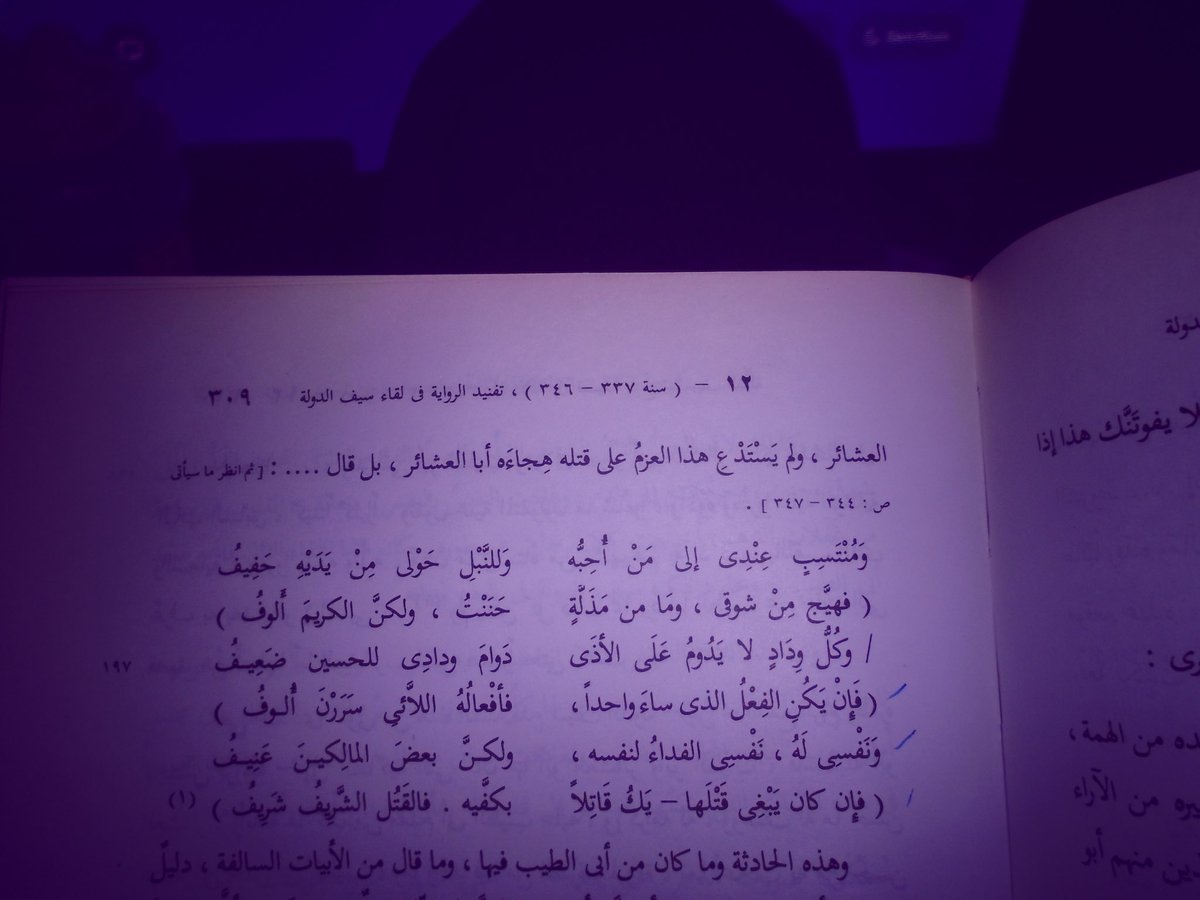 ١٢ – ( سنة ٣٣٧ – ٣٤٦ ) ، تفنيد الرواية فى لقاء سيف الدولة ٣٠٩
العشائر ، ولم يَسْتَدْعِ هذا العزمُ على قتله هِجاءَه أبا العشائر ، بل قال .... : [ ثم انظر ما سيأتى
ص : ٣٤٤ – ٣٤٧ ] .
وَمُنْتَسِبٍ عِنْدِى إلى مَنْ أُحِبُّه وَللنَّبْلِ حَوْلى مِنْ يَدَيْهِ حَفِيفُ
( فهيَّج مِنْ شوقى ، ومَا من مَذَلَّةٍ حَنَنْتُ ، ولكنَّ الكريمَ أَلوفُ )
/ وكُلُّ وِدَادٍ لا يَدُومُ عَلَى الأذَى دَوامَ ودادِى للحسين ضَعِيفُ ١٩٧
( فَإِنْ يَكُنِ الفِعْلُ الذى ساءَ واحداً ، فأفْعالُهُ اللاَّئي سَرَرْنَ أُلوفُ )
وَنَفْسِى لَهُ ، نَفْسِى الفداءُ لنفسه ، ولكنَّ بعضَ المالِكينَ عَنِيفُ
( فإن كان يَبْغِى قَتْلَها – يَكُ قَاتِلاً بكفَّيه . فالقَتْل الشَّرِيفُ شَرِيفُ ) (١)
وهذه الحادثة وما كان من أبى الطيب فيها ، وما قال من الأبيات السالفة ، دليلٌ
دولة
لا يفوتَنَّك هذا إذا
رى :
ده من الهمة ،
يره من الآراء
ين منهم أبو